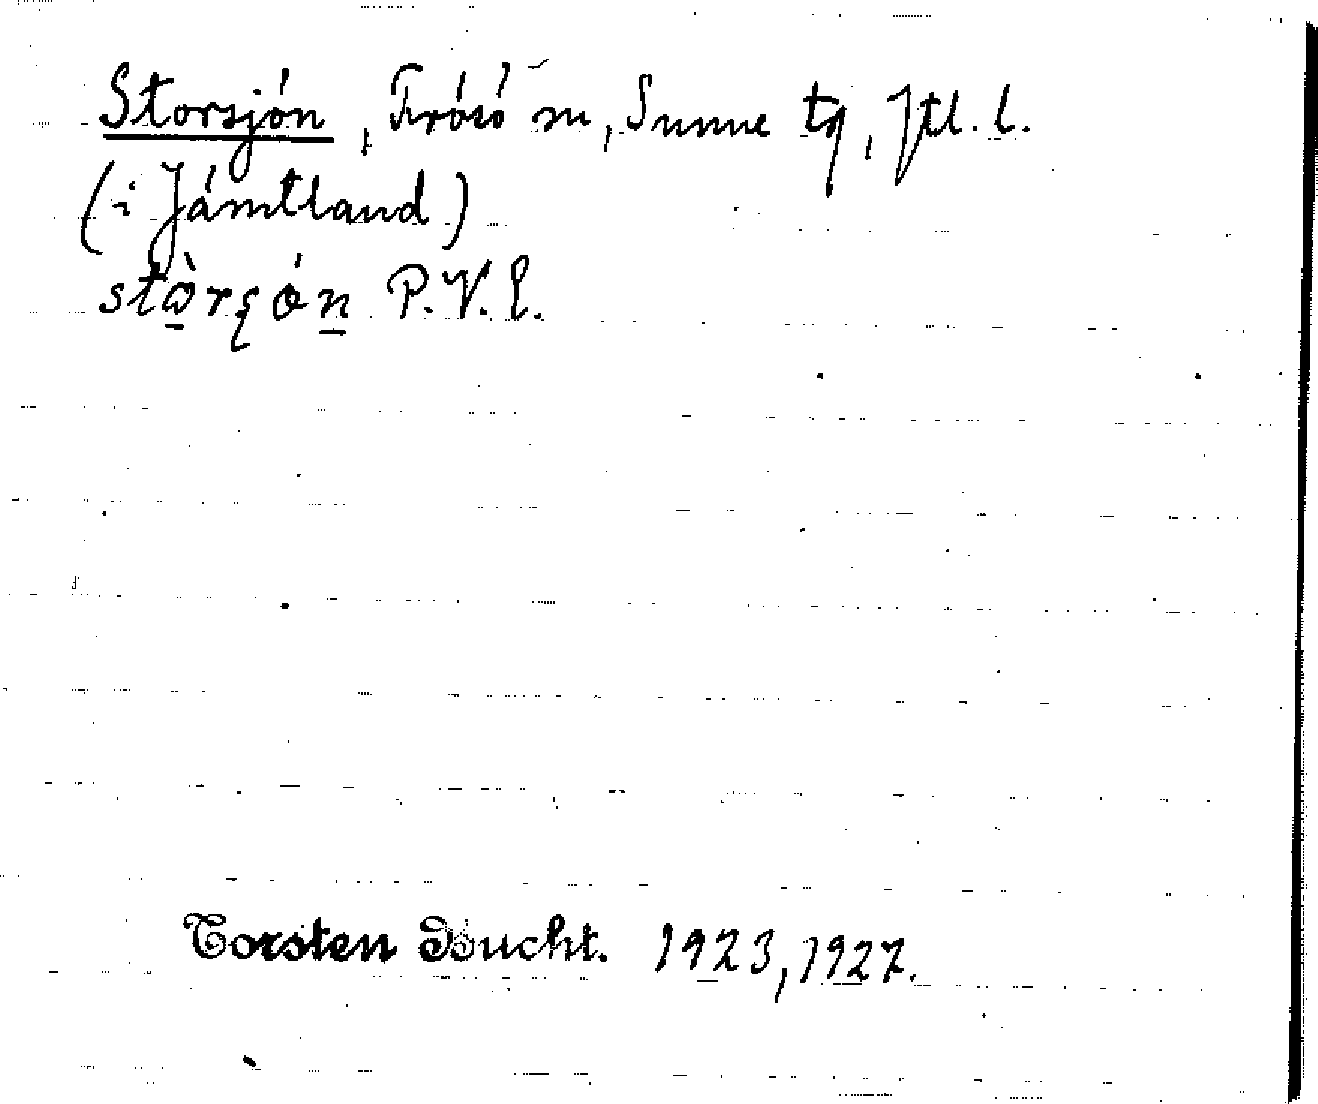 Storsjón, Frósó m, Sunne tg, Jtl. l.
(i Jámtland)
stɷ̀rşón P.V.E.
Torsten Bucht. 1923, 1927.